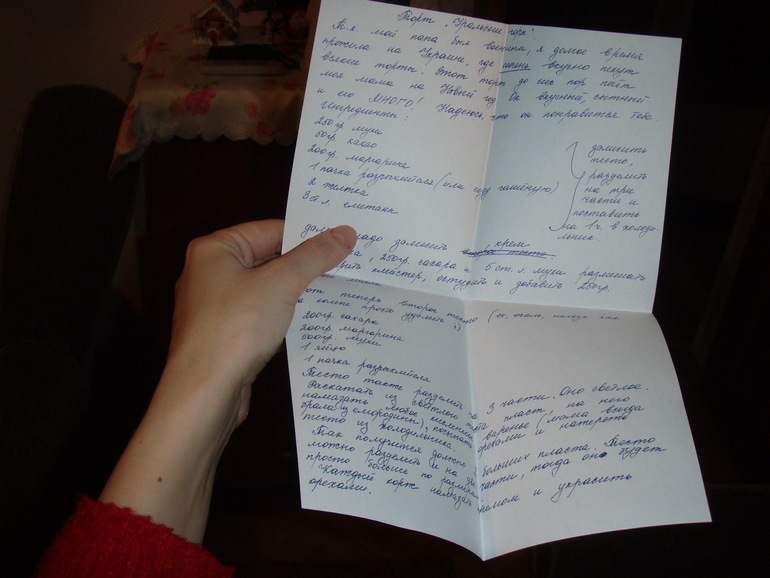 Торт "Уральские горы"
Т.к. мой папа был военным, я долгое время
прожила на Украине, где очень вкусно пекут
всякие торты. Этот торт до сих пор печёт
моя мама на Новый год. Он вкусный, сытный
и его МНОГО! Надеюсь, что он понравится тебе.
Ингредиенты:
250 гр. муки
60 гр. какао
200 гр. маргарина
1 пачка разрыхлителя (или соду гашёную)
2 желтка
3 ст. л. сметаны
замесить
тесто,
разделить
на три
части и
поставить
на 1 ч. в холодиль-
никах.
надо замесить крем
, 250 гр. сахара и 5 ст. л. муки размешать
клейстер, остудить и добавить 250 гр.
теперь второе тесто
просто удобнее :)
200 гр. сахара
200 гр. маргарина
600 гр. муки
1 яйцо
1 пачка разрыхлителя
Тесто также разделить на 3 части. Оно светлое.
Раскатать из светлого пласт, на него
намазать любое кисленькое варенье (мама всегда
брала из смородины), посыпать орехами и натереть
тесто из холодильника.
Так получится должно больших пласта. Тесто
можно разделить и на части, тогда оно будет
просто больше по размеру.
Каждый корж намазать кремом и украсить
орехами.